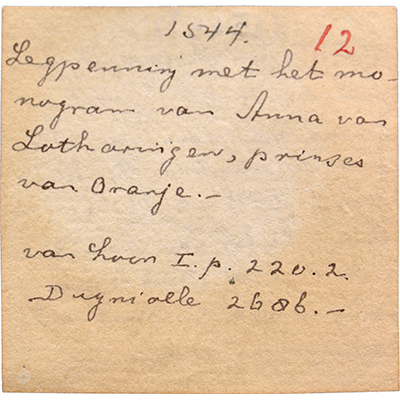 1544. 12
Legpenning met het mo-
nogram van Anna van
Lotharingen, prinses
van Oranje.-
van Loon I. p. 220. 2.
Dugniolle 2686.-